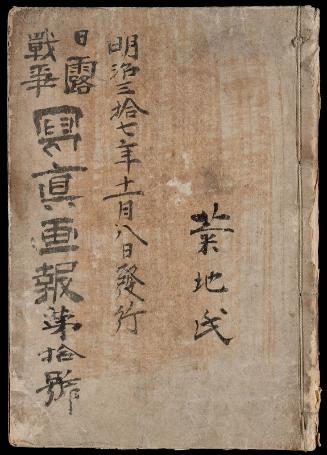 菊地氏
明治三拾七年十一月八日發行
日露
戰爭
寫真画報第拾號